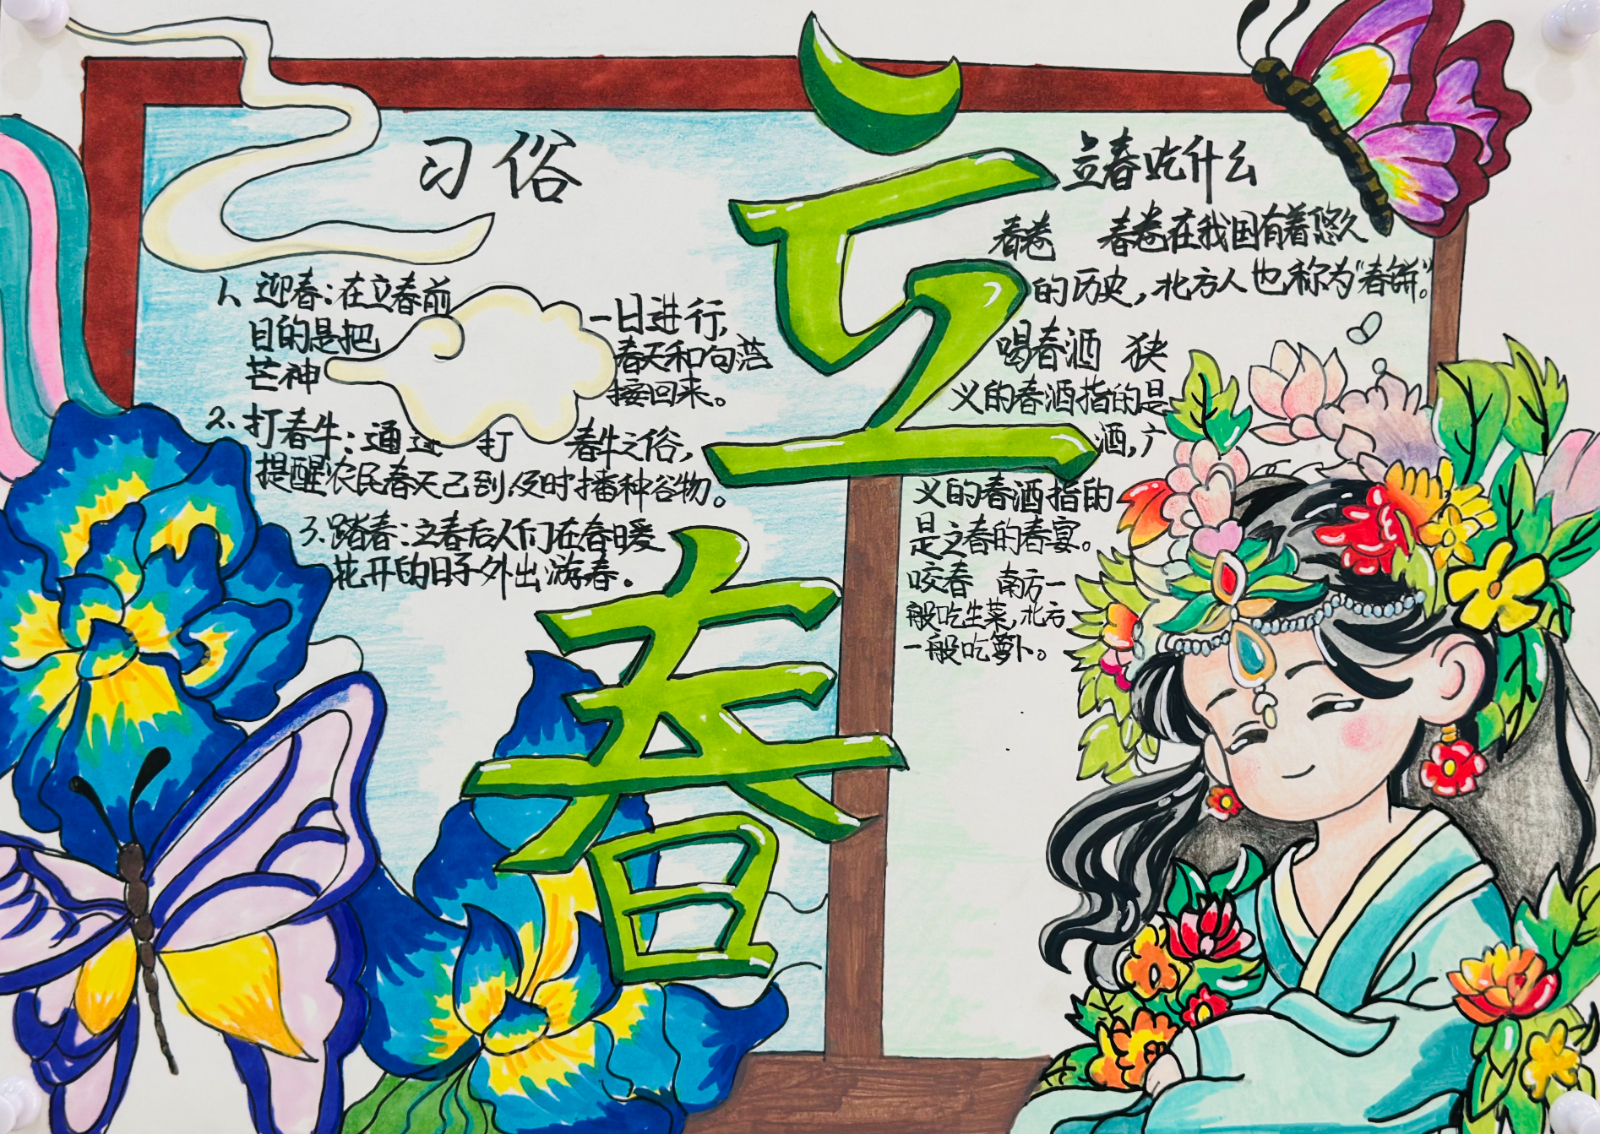 立春
习俗
1、迎春：在立春前一日进行，
目的是把春天和句芒
芒神接回来。
2、打春牛：通过打春牛之俗，
提醒农民春天己到，及时播种谷物。
3、踏春：立春后人们在春暖
花开的日子外出游春.
立春吃什么
春卷 春卷在我国有着悠久
的历史，北方人也称为“春饼”。
喝春酒 狭
义的春酒指的是
酒，广
义的春酒指的
是立春的春宴。
咬春 南方一
般吃生菜，北方
一般吃萝卜。